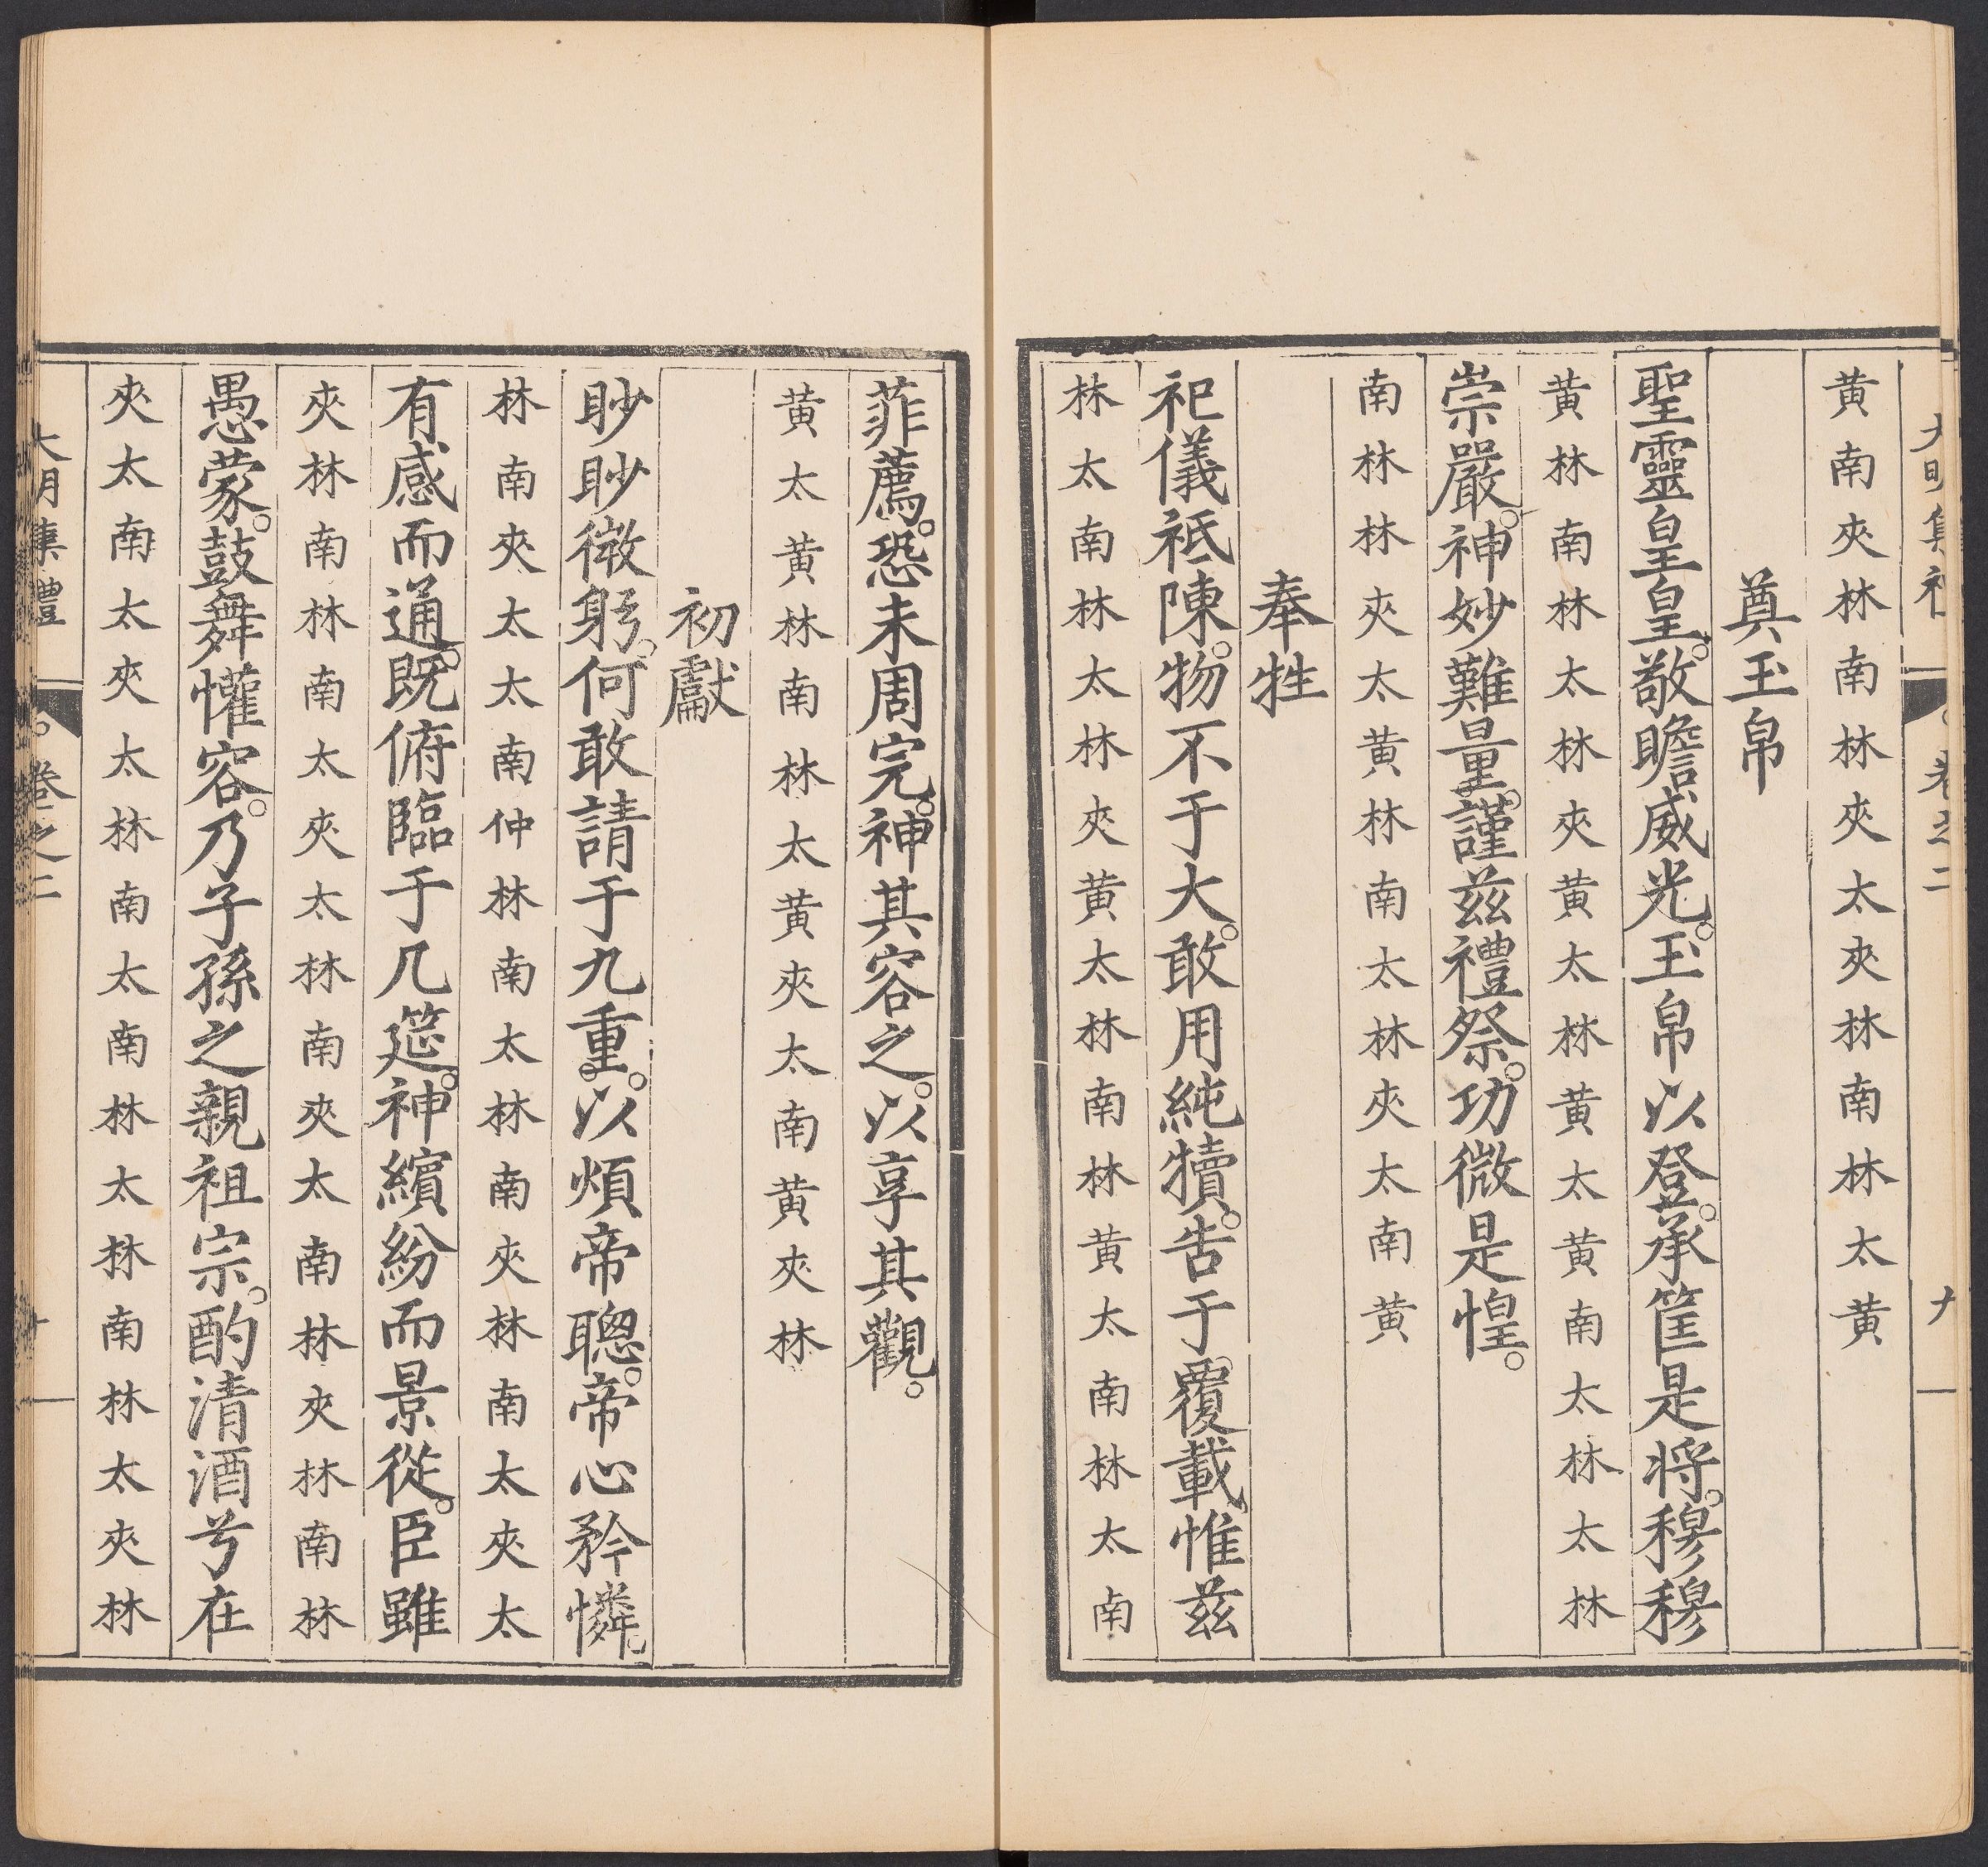 黄南夾林南林夾太夾林南林太黄
奠玉帛
聖靈皇皇。敬瞻威光。玉帛以登。承筐是将。穆穆
黄林南林太林夾黄太林黄太黄南太林太林
崇嚴。神妙難量。謹茲禮祭。功微是惶。
南林林夾太黄林南太林夾太南黄
奉牲
祀儀祗陳。物不于大。敢用純犢。告于覆載。惟茲
林太南林太林夾黄太林南林黄太南林太南
菲薦。恐未周完。神其容之。以享其觀。
黄太黄林南林太黄夾太南黄夾林
初獻
眇眇微躬。何敢請于九重。以煩帝聰。帝心矜憐。
林南夾太太南仲林南太林南夾林南太夾太
有感而通。既俯臨于几筵。神繽紛而景從。臣雖
夾林南林南太夾太林南夾太南林夾林南林
愚蒙。鼓舞懽容。乃子孫之親祖宗。酌清酒兮在
夾太南太夾太林南太南林太林南林太夾林
大明集禮
卷之二